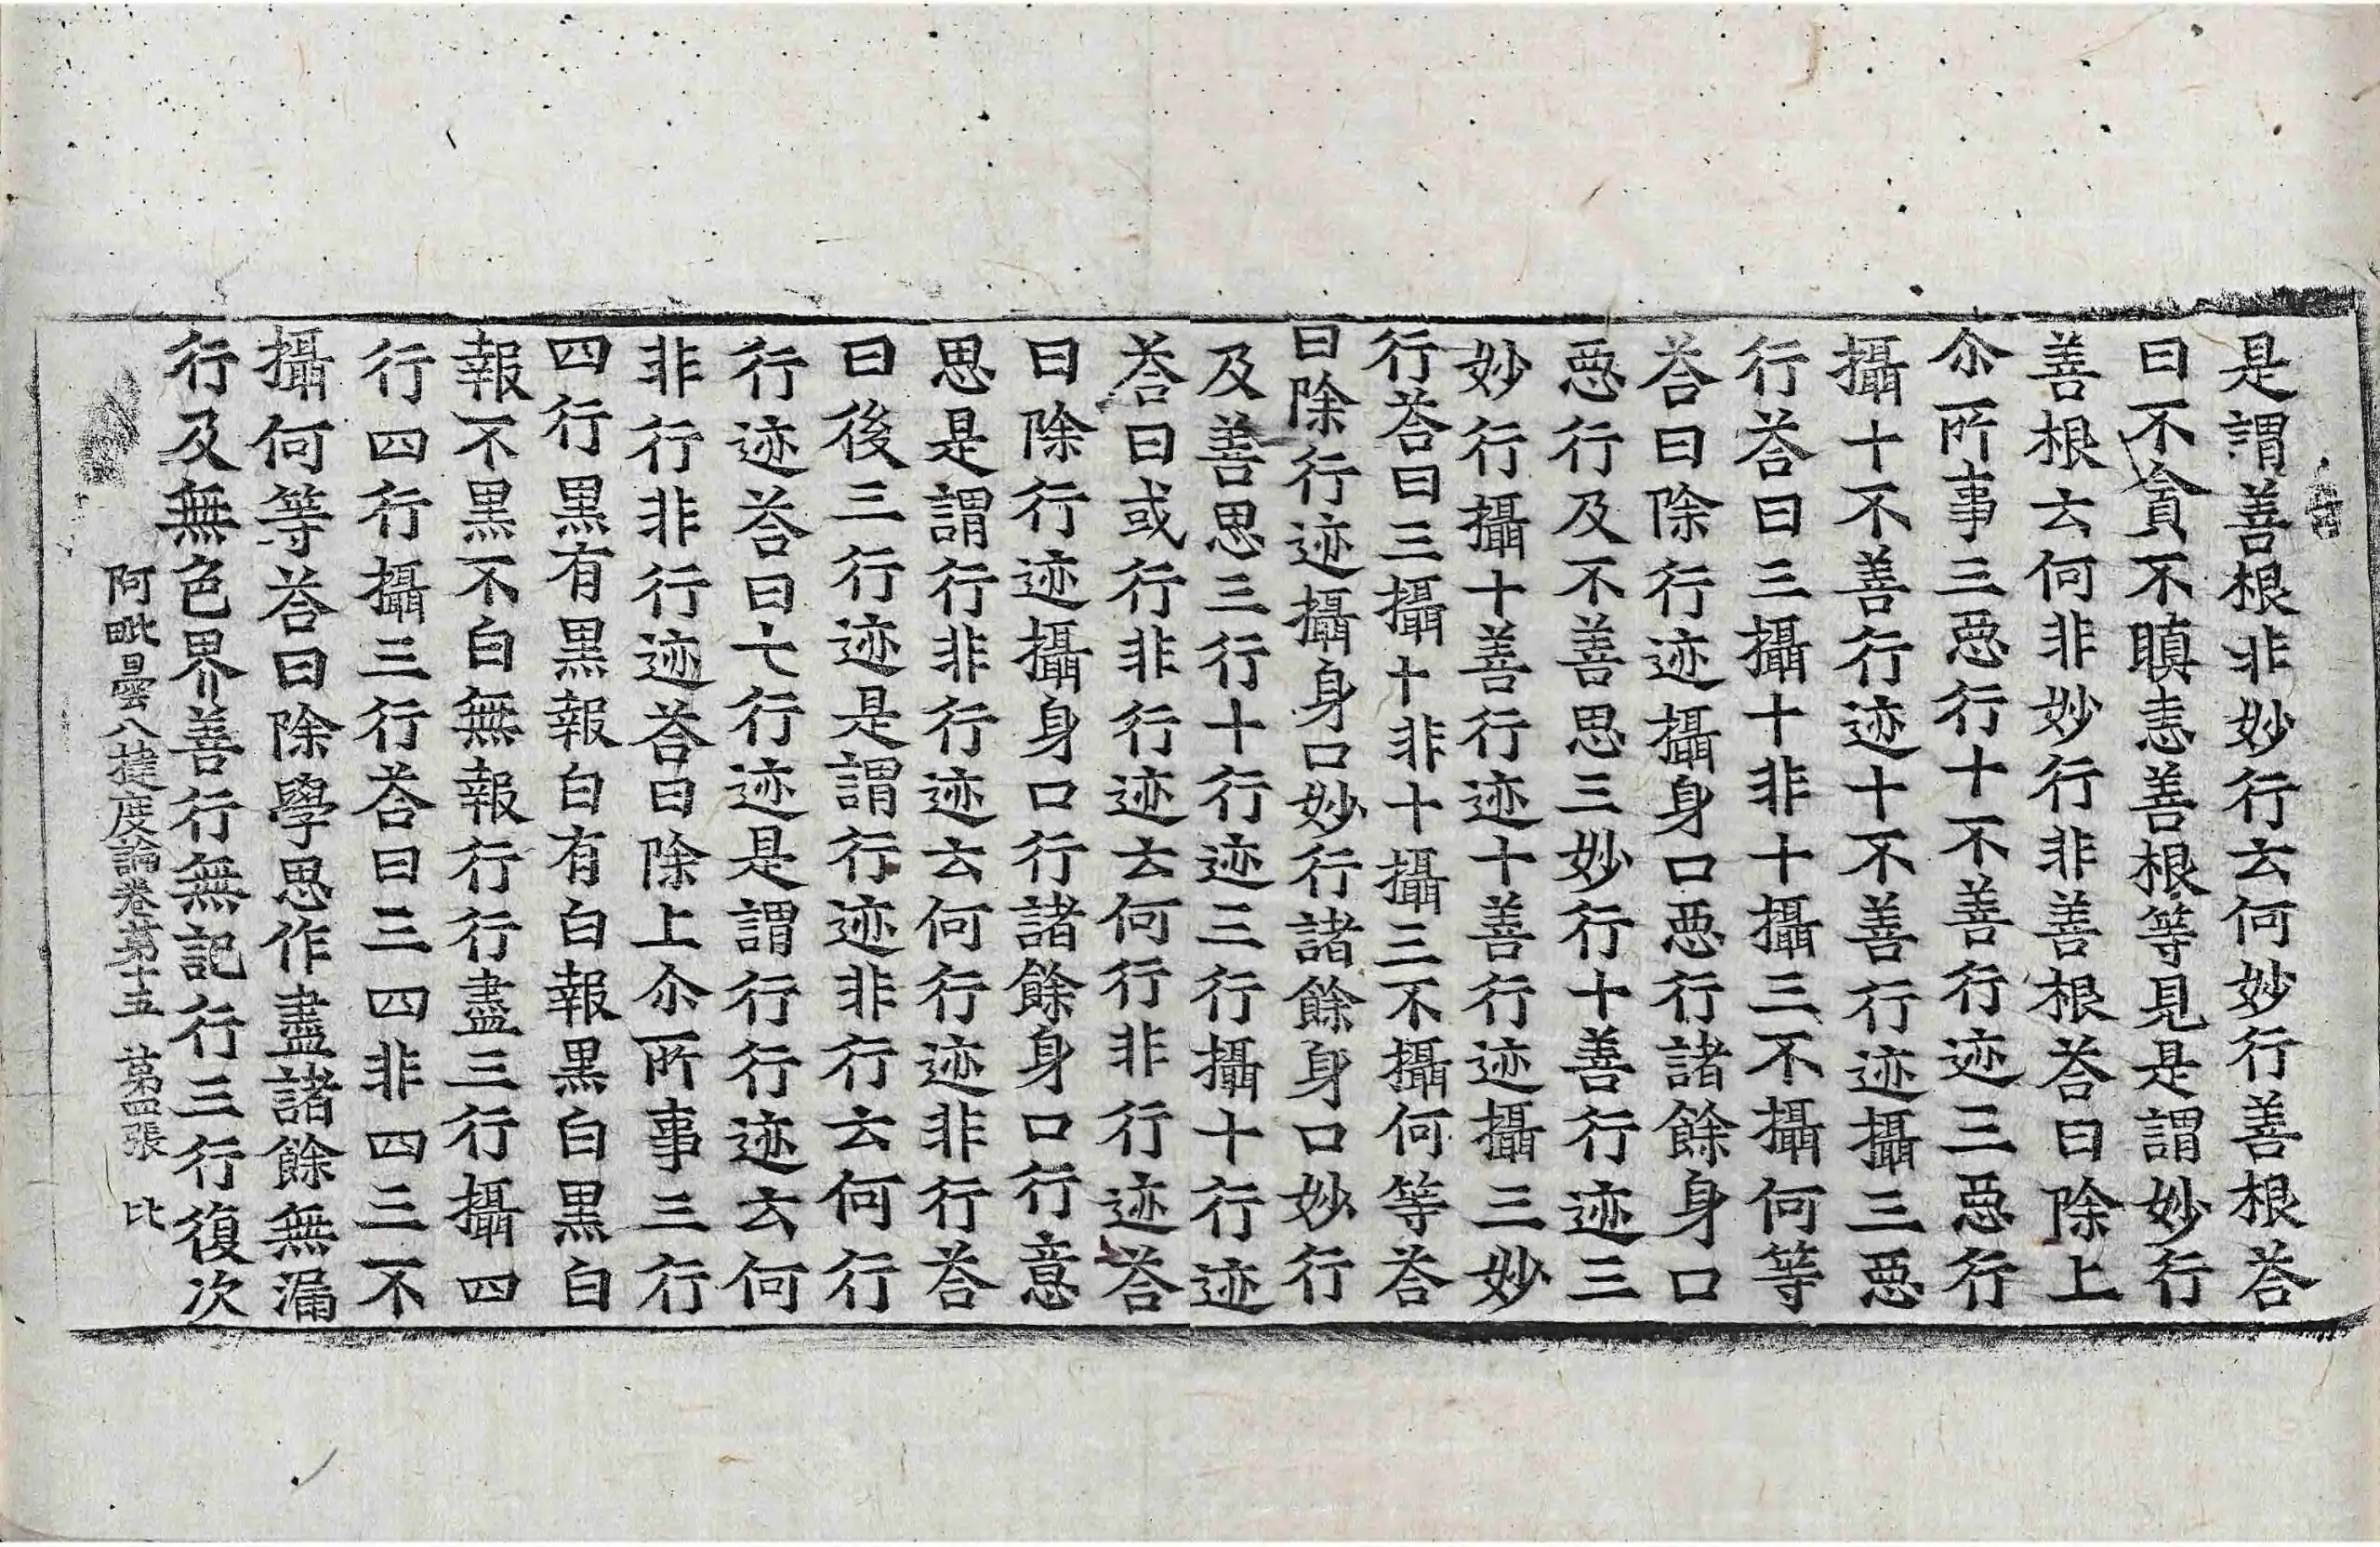 是謂善根非妙行云何妙行善根荅
曰不貪不瞋恚善根等見是謂妙行
善根云何非妙行非善根荅曰除上
尒所事三惡行十不善行迹三惡行
攝十不善行迹十不善行迹攝三惡
行荅曰三攝十非十攝三不攝何等
荅曰除行迹攝身口惡行諸餘身口
惡行及不善思三妙行十善行迹三
妙行攝十善行迹十善行迹攝三妙
行荅曰三攝十非十攝三不攝何等荅
曰除行迹攝身口妙行諸餘身口妙行
及善思三行十行迹三行攝十行迹
荅曰或行非行迹云何行非行迹荅
曰除行迹攝身口行諸餘身口行意
思是謂行非行迹云何行迹非行荅
曰後三行迹是謂行迹非行云何行
行迹荅曰七行迹是謂行行迹云何
非行非行迹荅曰除上尒所事三行
四行黑有黑報白有白報黑白黑白
報不黑不白無報行行盡三行攝四
行四行攝三行荅曰三四非四三不
攝何等荅曰除學思作盡諸餘無漏
行及無色界善行無記行三行復次
阿毗曇八揵度論卷苐十五 苐四張 比